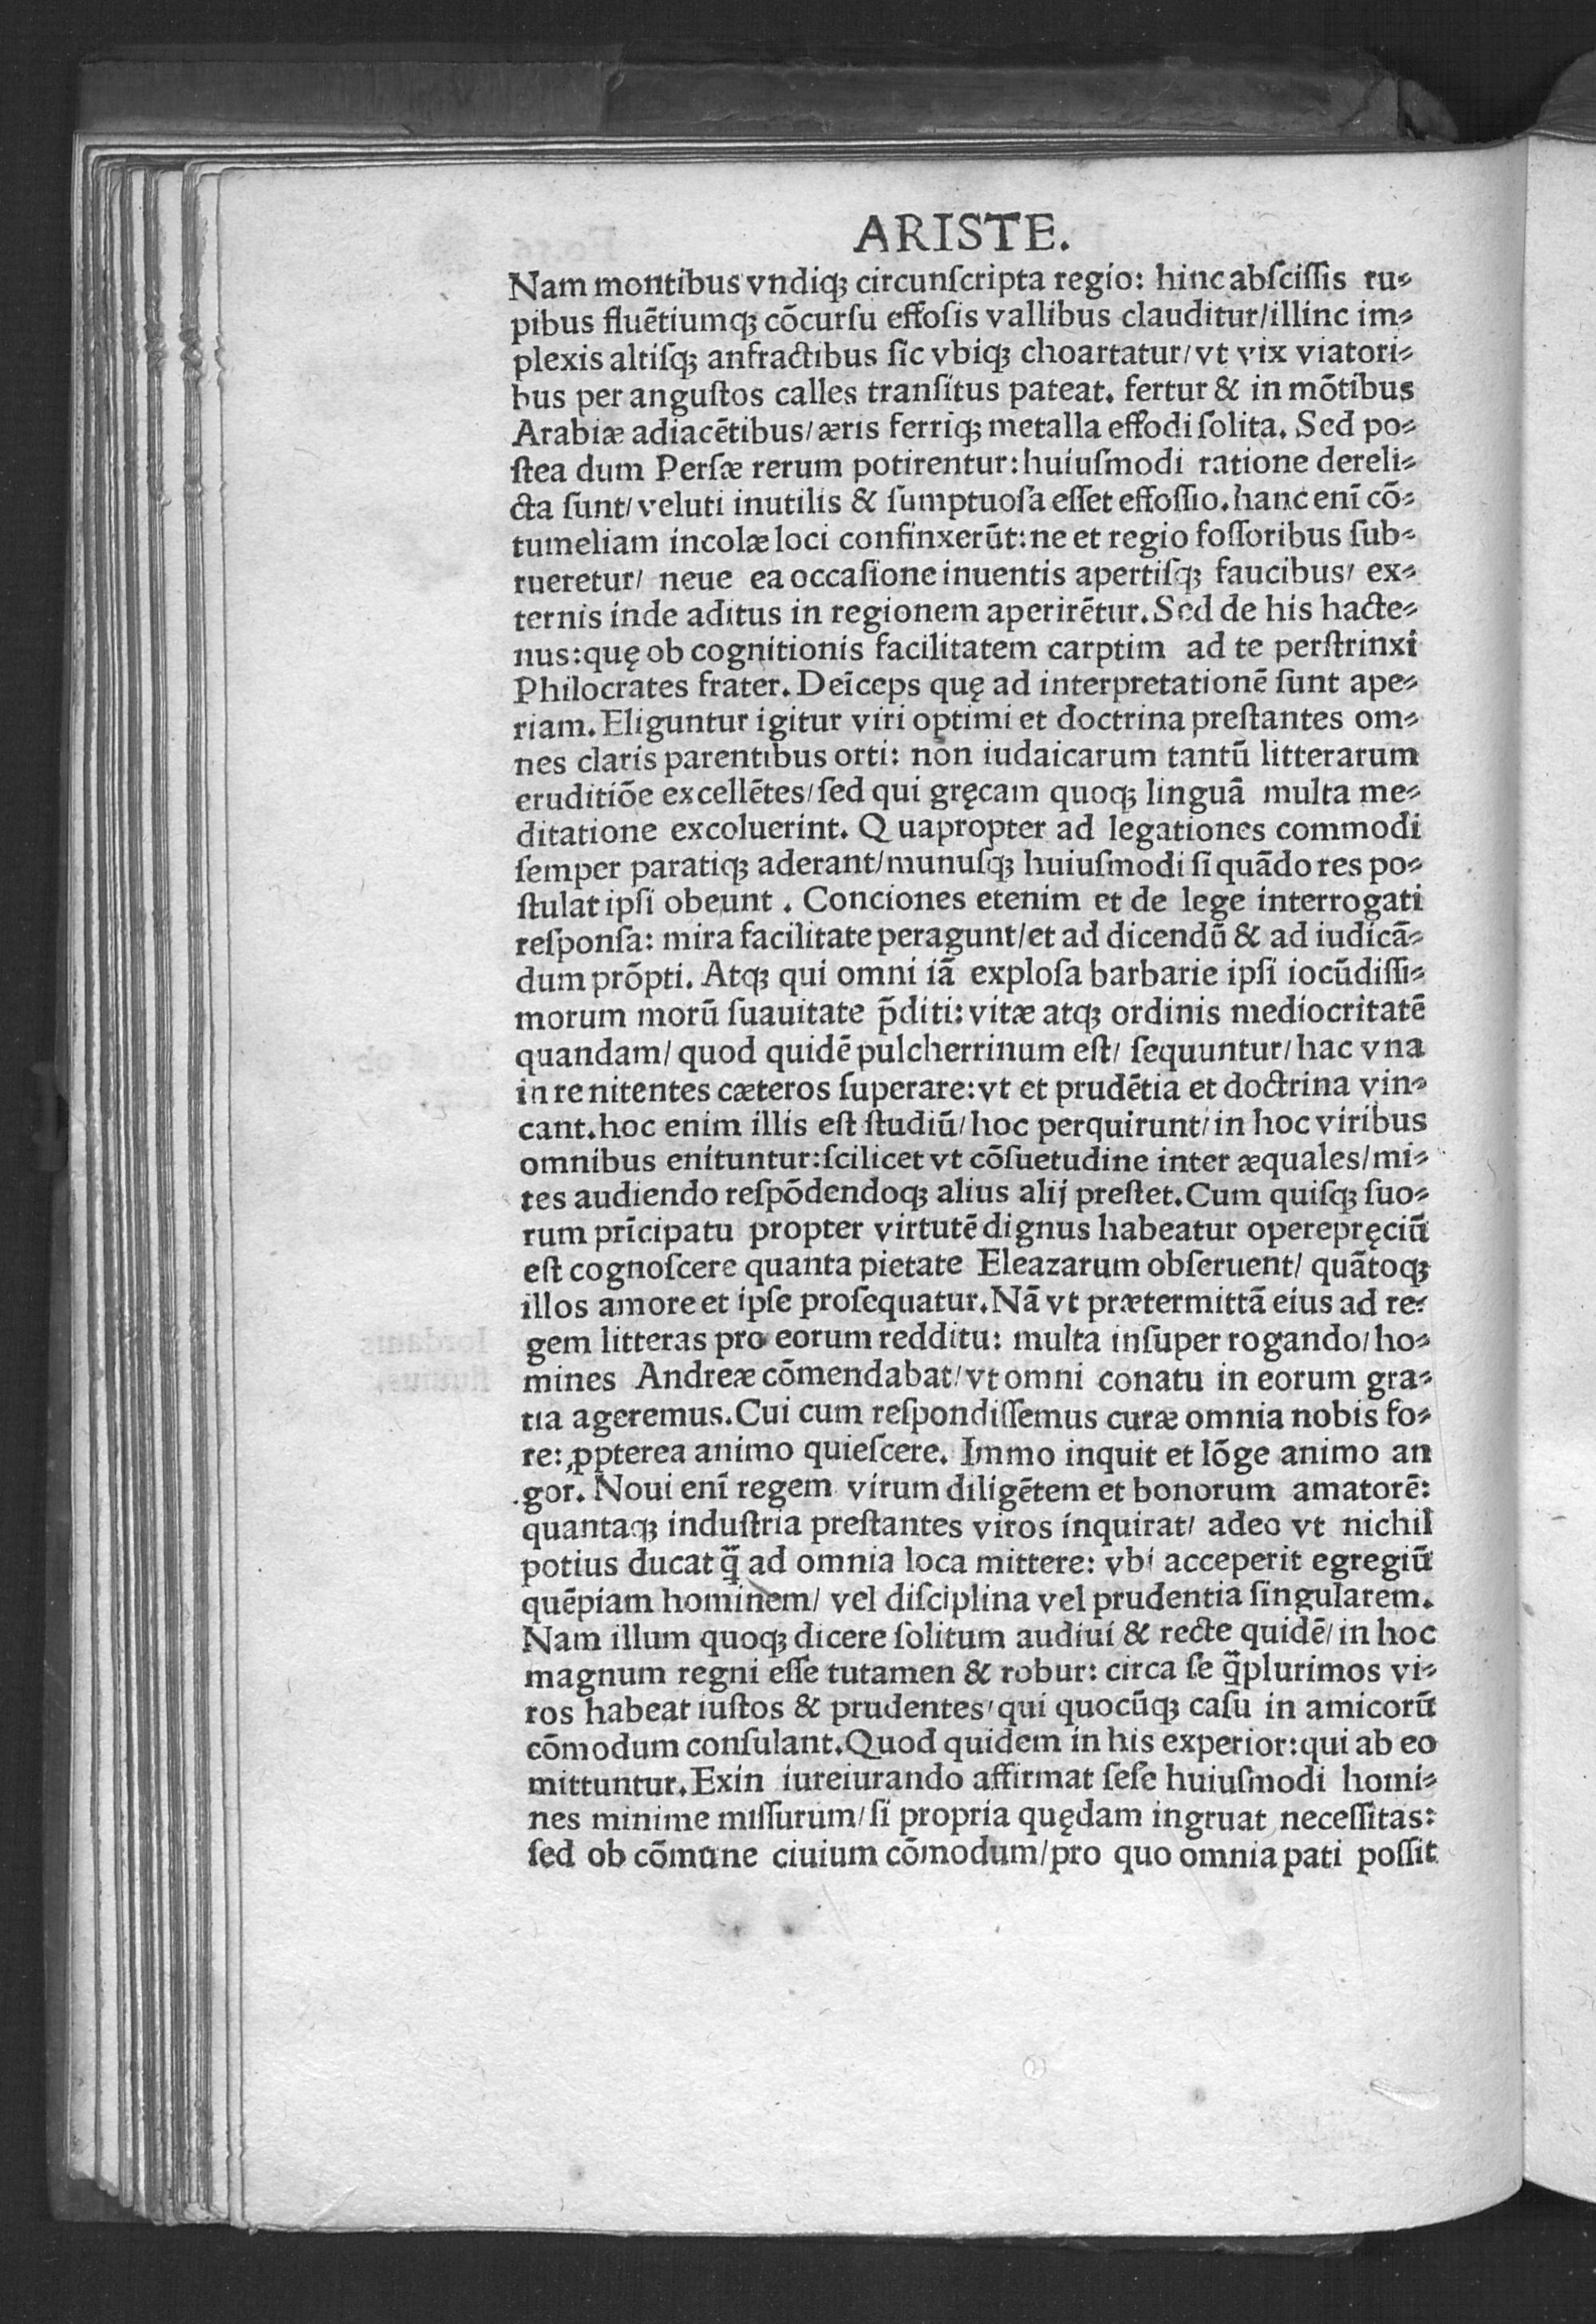 ARISTE.
Nam montibus vndiqꝫ circunſcripta regio: hinc abſciſſis ru⸗
pibus fluẽtiumqꝫ cõcurſu effoſis vallibus clauditur/illinc im⸗
plexis altiſqꝫ anfractibus ſic vbiqꝫ choartatur/vt vix viatori⸗
bus per anguſtos calles tranſitus pateat. fertur & in mõtibus
Arabiæ adiacẽtibus/æris ferriqꝫ metalla effodi ſolita. Sed po⸗
ſtea dum Perſæ rerum potirentur: huiuſmodi ratione dereli⸗
cta ſunt/veluti inutilis & ſumptuoſa eſſet effoſſio. hanc enĩ cõ⸗
tumeliam incolæ loci confinxerũt: ne et regio foſſoribus ſub⸗
rueretur/ neue ea occaſione inuentis apertiſqꝫ faucibus/ ex⸗
ternis inde aditus in regionem aperirẽtur. Sed de his hacte⸗
nus: quę ob cognitionis facilitatem carptim ad te perſtrinxi
Philocrates frater. Deĩceps quę ad interpretationẽ ſunt ape⸗
riam. Eliguntur igitur viri optimi et doctrina preſtantes om⸗
nes claris parentibus orti: non iudaicarum tantũ litterarum
eruditiõe excellẽtes/ſed qui gręcam quoqꝫ linguã multa me⸗
ditatione excoluerint. Quapropter ad legationes commodi
ſemper paratiqꝫ aderant/munuſqꝫ huiuſmodi ſi quãdo res po⸗
ſtulat ipſi obeunt. Conciones etenim et de lege interrogati
reſponſa: mira facilitate peragunt/et ad dicendũ & ad iudicã⸗
dum prõpti. Atqꝫ qui omni iã exploſa barbarie ipſi iocũdiſſi⸗
morum morũ ſuauitate p̃diti: vitæ atqꝫ ordinis mediocritatẽ
quandam/ quod quidẽ pulcherrinum eſt/ ſequuntur/ hac vna
in re nitentes cæteros ſuperare: vt et prudẽtia et doctrina vin⸗
cant. hoc enim illis eſt ſtudiũ/ hoc perquirunt/ in hoc viribus
omnibus enituntur: ſcilicet vt cõſuetudine inter æquales/mi⸗
tes audiendo reſpõdendoqꝫ alius alij preſtet. Cum quiſqꝫ ſuo⸗
rum prĩcipatu propter virtutẽ dignus habeatur operepręciũ
eſt cognoſcere quanta pietate Eleazarum obſeruent/ quãtoqꝫ
illos amore et ipſe proſequatur. Nã vt prætermittã eius ad re⸗
gem litteras pro eorum redditu: multa inſuper rogando/ho⸗
mines Andreæ cõmendabat/vt omni conatu in eorum gra⸗
tia ageremus. Cui cum reſpondiſſemus curæ omnia nobis fo⸗
re: ꝓpterea animo quieſcere. Immo inquit et lõge animo an
gor. Noui enĩ regem virum diligẽtem et bonorum amatorẽ:
quantaqꝫ induſtria preſtantes viros inquirat/ adeo vt nichil
potius ducat q̃ ad omnia loca mittere: vbi acceperit egregiũ
quẽpiam hominem/ vel diſciplina vel prudentia ſingularem.
Nam illum quoqꝫ dicere ſolitum audiui & recte quidẽ/ in hoc
magnum regni eſſe tutamen & robur: circa ſe q̃plurimos vi⸗
ros habeat iuſtos & prudentes/qui quocũqꝫ caſu in amicorũ
cõmodum conſulant. Quod quidem in his experior: qui ab eo
mittuntur. Exin iureiurando affirmat ſeſe huiuſmodi homi⸗
nes minime miſſurum/ſi propria quędam ingruat neceſſitas:
ſed ob cõmune ciuium cõmodum/pro quo omnia pati poſſit